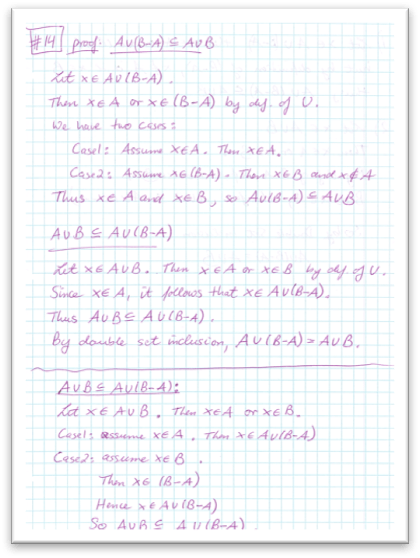 #14 proof: A∪(B-A) ⊆ A∪B
Let x∈A∪(B-A).
Then x∈A or x∈(B-A) by def. of ∪.
We have two cases:
Case1: Assume x∈A. Then x∈A.
Case2: Assume x∈(B-A). Then x∈B and x∉A
Thus x∈A and x∈B, so A∪(B-A) ⊆ A∪B
A∪B ⊆ A∪(B-A)
Let x∈A∪B. Then x∈A or x∈B by def. of ∪.
Since x∈A, it follows that x∈A∪(B-A).
Thus A∪B ⊆ A∪(B-A).
By double set inclusion, A∪(B-A) = A∪B.
A∪B ⊆ A∪(B-A):
Let x∈A∪B. Then x∈A or x∈B.
Case1: assume x∈A. Then x∈A∪(B-A)
Case2: assume x∈B.
Then x∈(B-A)
Hence x∈A∪(B-A)
So A∪B ⊆ A∪(B-A).